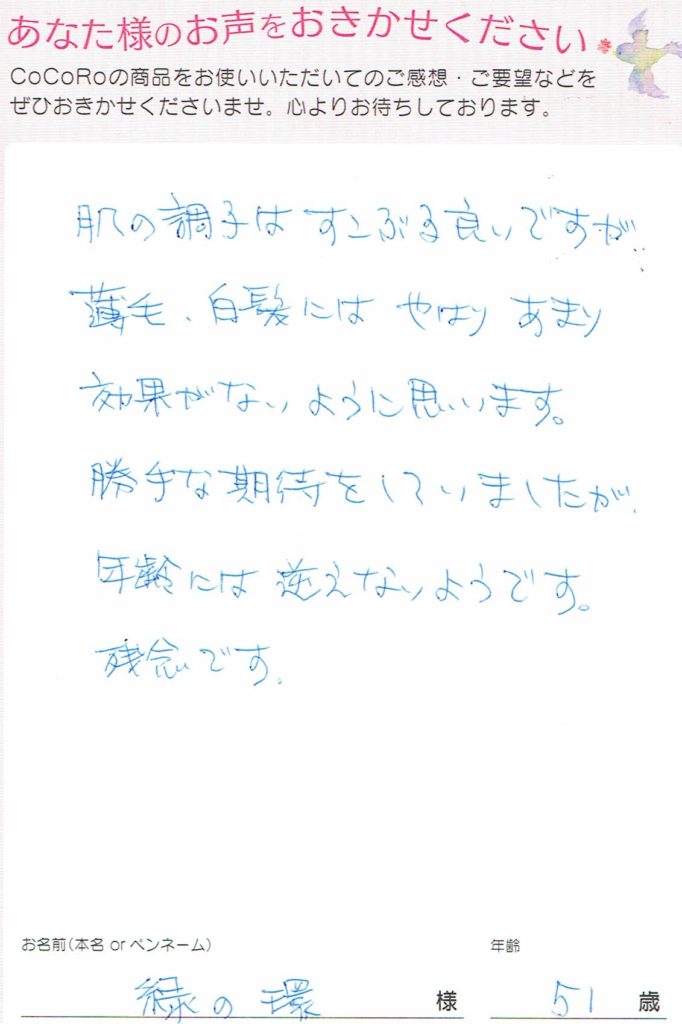 あなた様のお声をおきかせください
CoCoRoの商品をお使いいただいてのご感想・ご要望などを
ぜひおきかせくださいませ。心よりお待ちしております。
肌の調子は すこぶる良いですが
薄毛、白髪には やはり あまり
効果がないように思います。
勝手な期待をしていましたが、
年齢には 逆えないようです。
残念です。
お名前(本名 or ペンネーム)
年齢
緑の環 様
51 歳